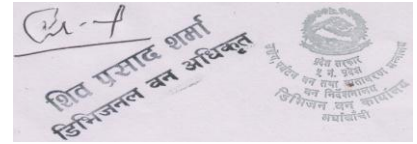 शिव प्रसाद शर्मा
डिभिजनल वन अधिकृत
प्रदेश सरकार
१ नं. प्रदेश
उद्योग, पर्यटन वन तथा वातावरण मन्त्रालय
वन निर्देशनालय
डिभिजन वन कार्यालय
अर्घाखाँची